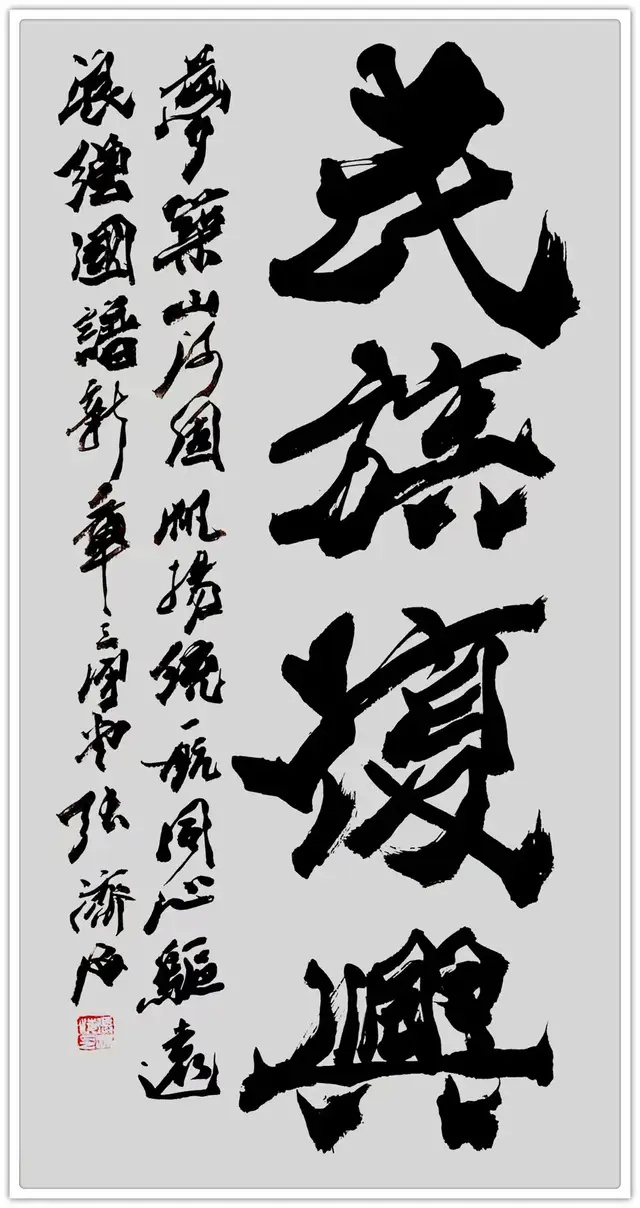 民族復興
夢築山河固帆揚統一航同心驅遠
浪繪圖譜新章三堂张濟海